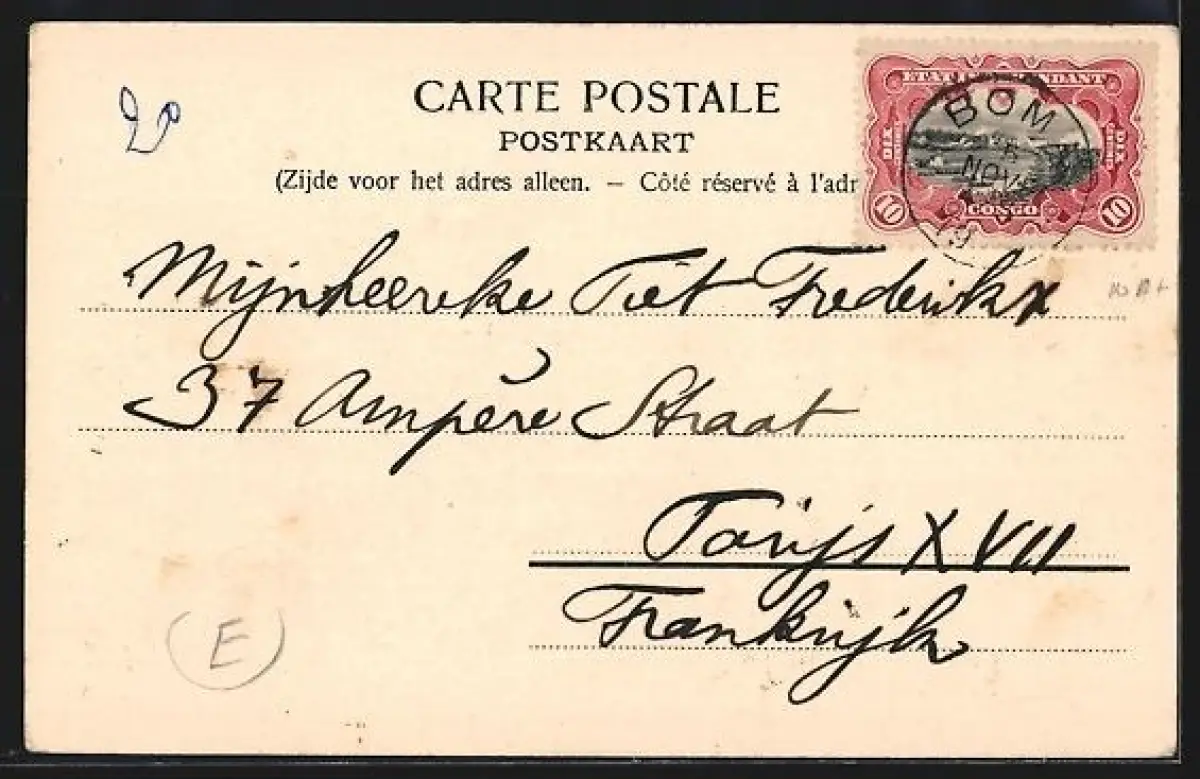 CARTE POSTALE
POSTKAART
(Zijde voor het adres alleen. — Côté réservé à l'adr
ETAT INDANT
DIX
DIX
10 CONGO 10
BOM
NOV
Mijnheereke Piet Frederikx
37 Ampère Straat
Parijs XVII
Frankrijk
E